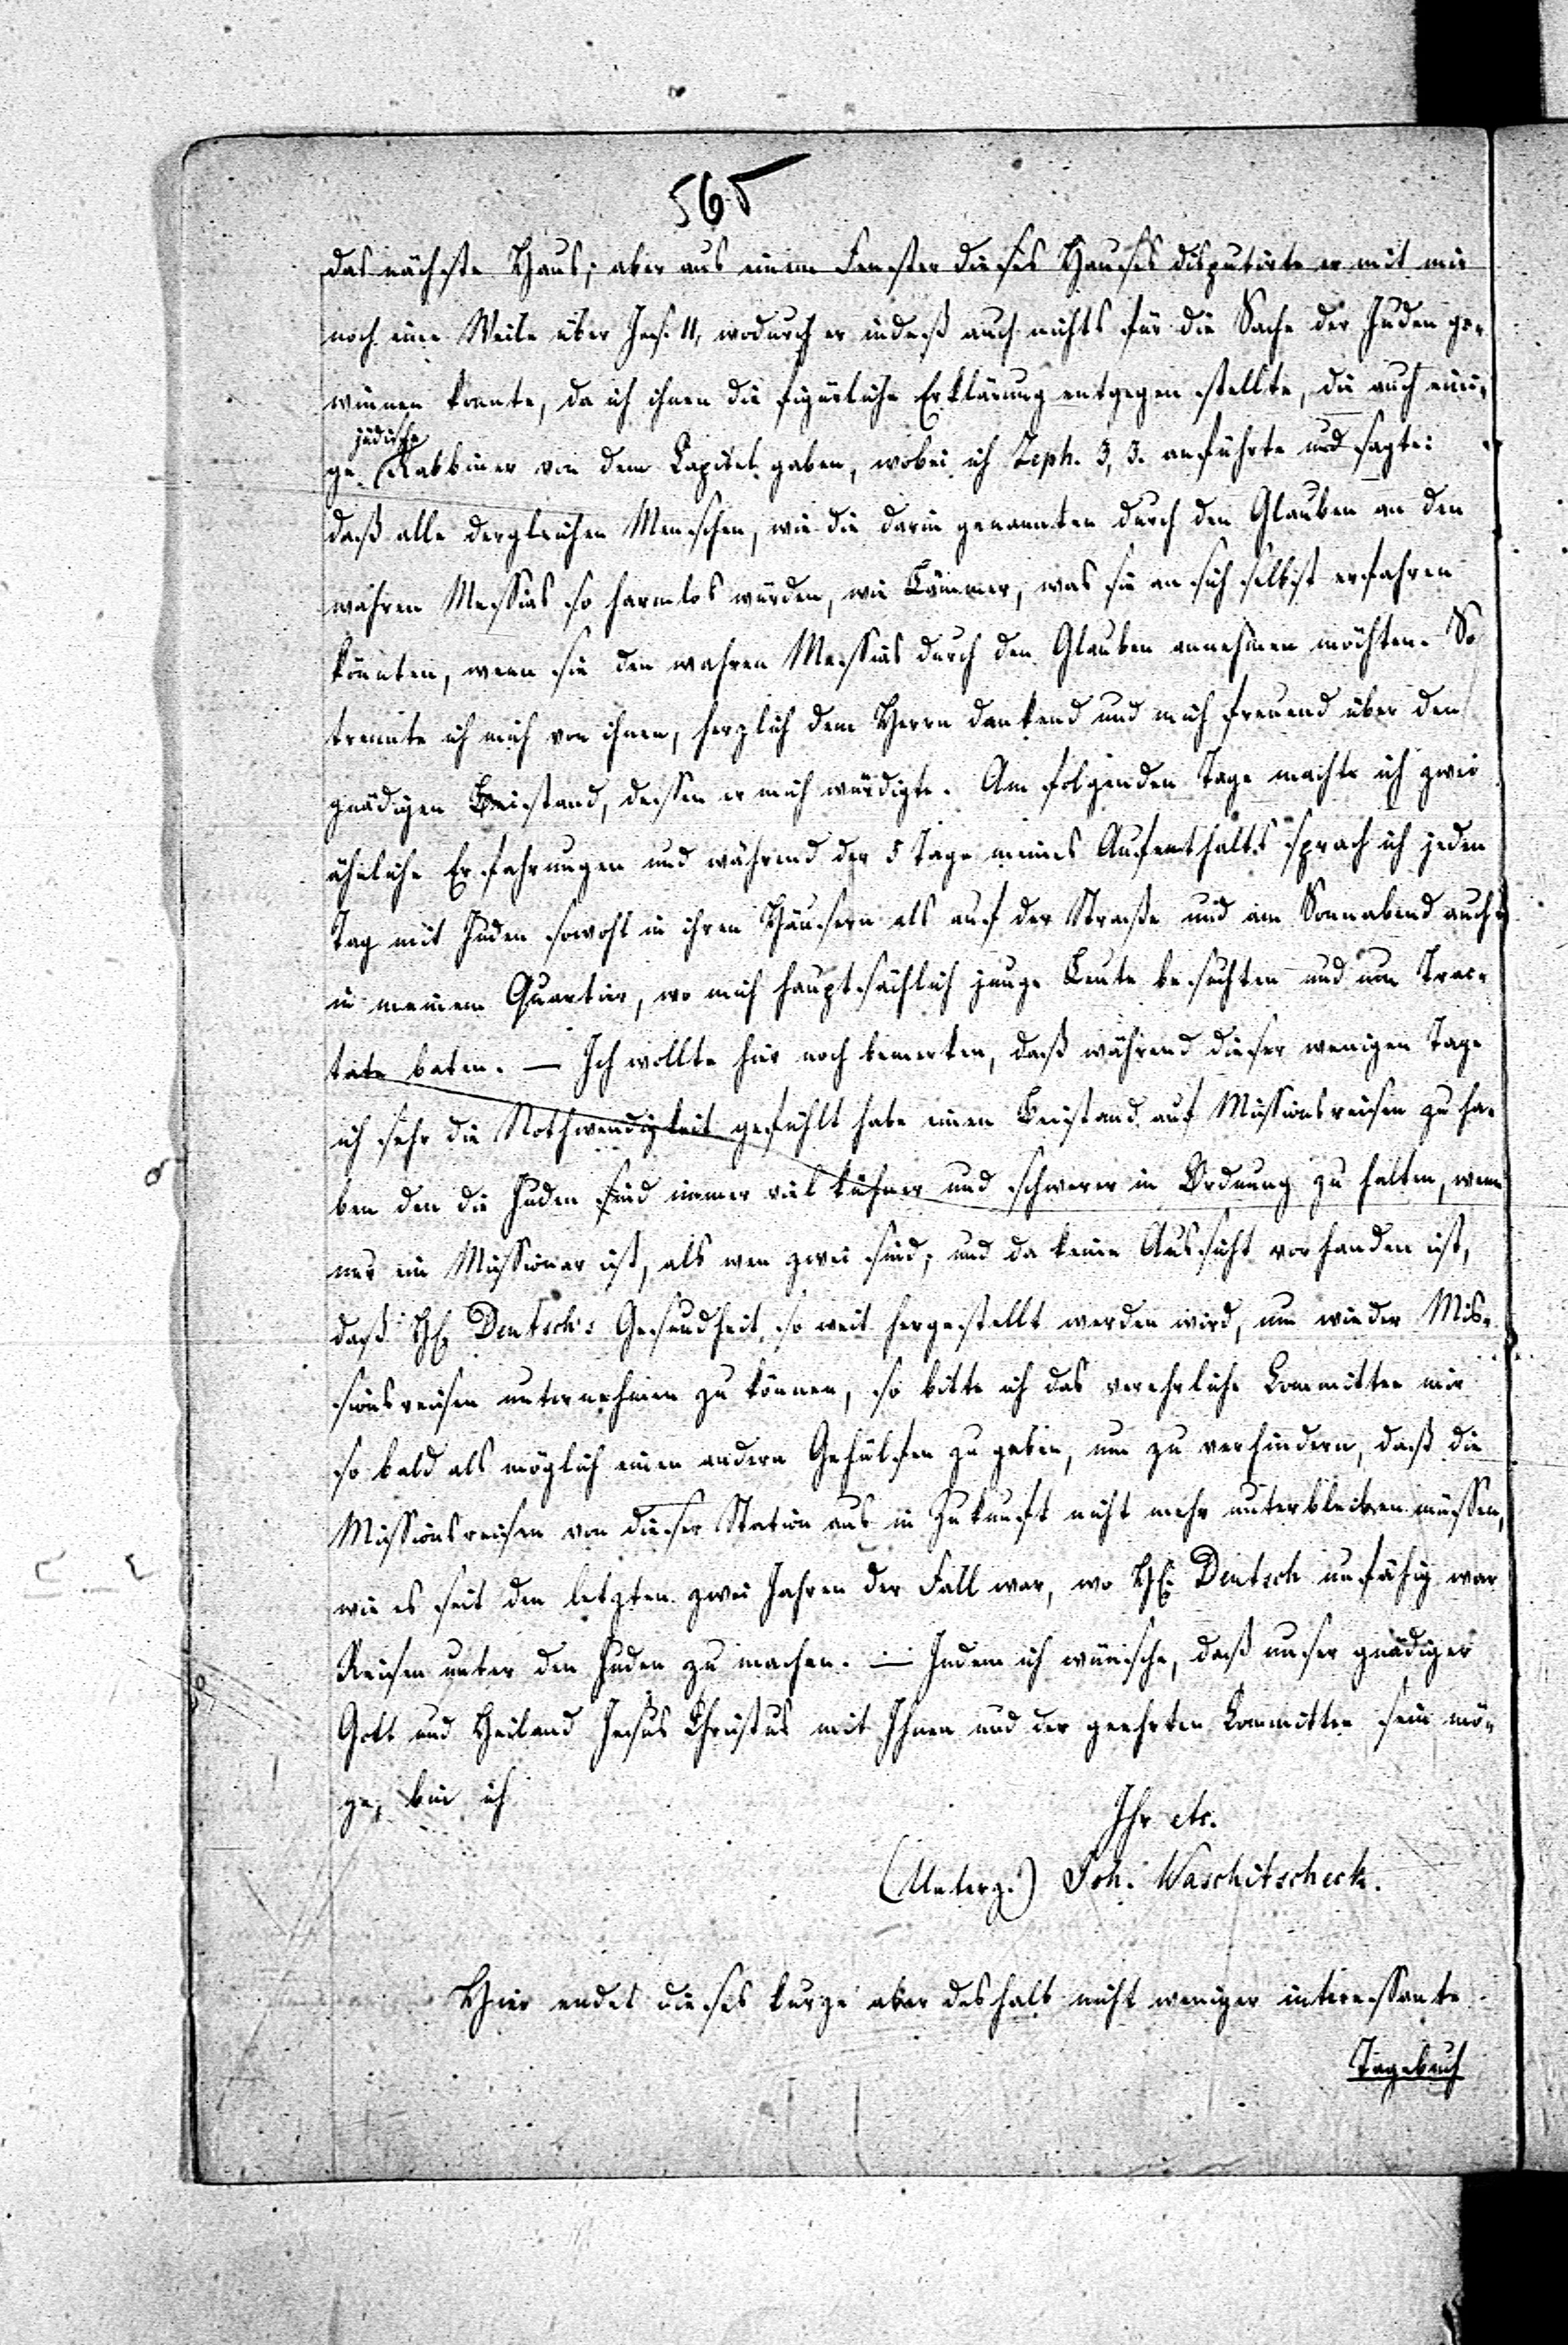 565
das nächste Haus; aber aus einem Fenster dieses Hauses disputirte er mit mir
noch eine Weile über Jes. 11, wodurch er indeß auch nichts für die Sache der Juden ge-
winnen konnte, da ich ihnen die figürliche Erklärung entgegen stellte, die auch eini-
jüdische
ge Rabbiner von dem Capitel gaben, wobei ich Zeph. 3, 3. anführte und sagte:
daß alle dergleichen Menschen, wie die darin genannten durch den Glauben an den
wahren Messias so harmlos würden, wie Lämmer, was sie an sich selbst erfahren
könnten, wenn sie den wahren Messias durch den Glauben annehmen möchten. So
trennte ich mich von ihnen, herzlich dem Herrn dankend und mich freuend über den
gnädigen Beistand, dessen er mich würdigte. Am folgenden Tage machte ich zwei
ähnliche Erfahrungen und während der 5 Tage meines Aufenthalts sprach ich jeden
Tag mit Juden sowohl in ihren Häusern als auf der Straße und am Sonnabend auch
in meinem Quartier, wo mich hauptsächlich junge Leute besuchten und um Trac-
tate baten. — Ich wollte hier noch bemerken, daß während dieser wenigen Tage
ich sehr die Nothwendigkeit gefühlt habe einen Beistand auf Missionsreisen zu ha-
ben den die Juden sind immer viel kühner und schwerer in Ordnung zu halten, wenn
nur ein Missionar ist, als wen zwei sind; und da keine Aussicht vorhanden ist,
daß H. Deutsch's Gesundheit so weit hergestellt werden wird, um wieder Mis-
sionsreisen unternehmen zu können, so bitte ich das verehrliche Committee mir
so bald als möglich einen andern Gehülfen zu geben, um zu verhindern, daß die
Missionsreisen von dieser Station aus in Zukunft nicht mehr unterbleiben müssen,
wie es seit den letzten zwei Jahren der Fall war, wo H. Deutsch unfähig war
Reisen unter den Juden zu machen. — Indem ich wünsche, daß unser gnädiger
Gott und Heiland Jesus Christus mit Ihnen und der geehrten Committee sein mö-
ge, bin ich
Ihr etc.
(Unterz.) Joh. Waschitscheck.
Hier endet dieses kurze aber deshalb nicht weniger interessante
Tagebuch